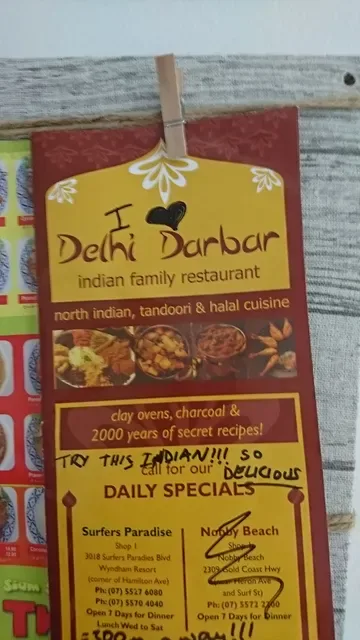 I ♥
Delhi Darbar
indian family restaurant
north indian, tandoori & halal cuisine
clay ovens, charcoal &
2000 years of secret recipes!
TRY THIS INDIAN!!! SO
DELICIOUS
call for our
DAILY SPECIALS
Surfers Paradise
Shop 1
3018 Surfers Paradies Blvd
Wyndham Resort
(corner of Hamilton Ave)
Ph: (07) 5527 6080
Ph: (07) 5570 4040
Open 7 Days for Dinner
Lunch Wed to Sat
Nobby Beach
Shop
Nobby Beach
2309 Gold Coast Hwy
Heron Ave
and Surf St)
Ph: (07) 5572
Open 7 Days for Dinner